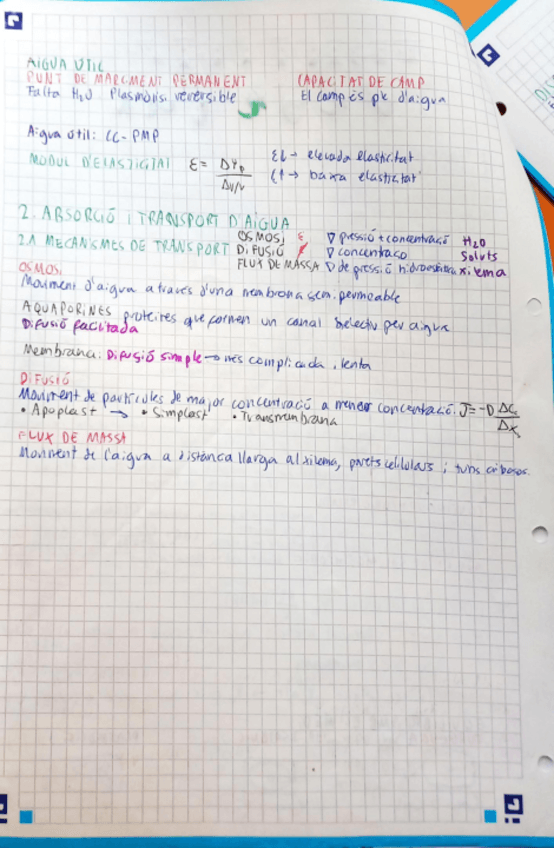 AIGUA ÚTIL
PUNT DE MARCIMENT PERMANENT CAPACITAT DE CAMP
Falta H₂O Plasmòlisi reversible El camp és ple d'aigua
Aigua útil: CC - PMP
MODUL D'ELASTICITAT ε = ΔΨp / ΔV/V
ε↓ → elevada elasticitat
ε↑ → baixa elasticitat
2. ABSORCIÓ I TRANSPORT D'AIGUA
2.1 MECANISMES DE TRANSPORT
OSMOSI ∇ pressió + concentració H₂O
DIFUSIÓ ∇ concentració Soluts
FLUX DE MASSA ∇ de pressió hidrostàtica xilema
OSMOSI
Moviment d'aigua a traves d'una membrana semipermeable
AQUAPORINES proteïnes que formen un canal selectiu per aigua
Difusió facilitada
Membrana: Difusió simple → més complicada, lenta
DIFUSIÓ
Moviment de partícules de major concentració a menor concentració. J = -D ΔC / Δx
• Apoplast → • Simplast • Transmembrana
FLUX DE MASSA
Moviment de l'aigua a distància llarga al xilema, parets cel·lulars i tubs cribosos.